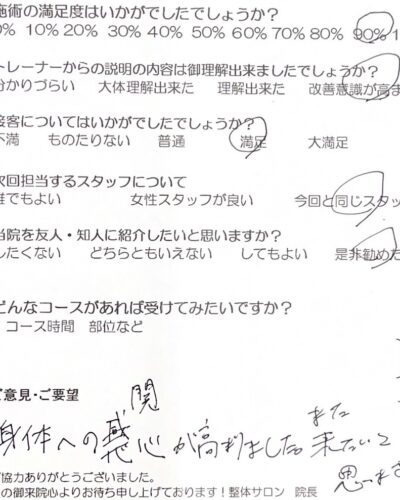 施術の満足度はいかがでしたでしょうか？
0% 10% 20% 30% 40% 50% 60% 70% 80% 90% 1
トレーナーからの説明の内容は御理解出来ましたでしょうか？
分かりづらい 大体理解出来た 理解出来た 改善意識が高ま
接客についてはいかがでしたでしょうか？
不満 ものたりない 普通 満足 大満足
次回担当するスタッフについて
誰でもよい 女性スタッフが良い 今回と同じスタッ
当院を友人・知人に紹介したいと思いますか？
したくない どちらともいえない してもよい 是非勧めた
どんなコースがあれば受けてみたいですか？
コース時間 部位など
ご意見・ご要望
関
身体への心が高まりました また来たいと
思います
ご協力ありがとうございました。
の御来院心よりお待ち申し上げております！整体サロン 院長